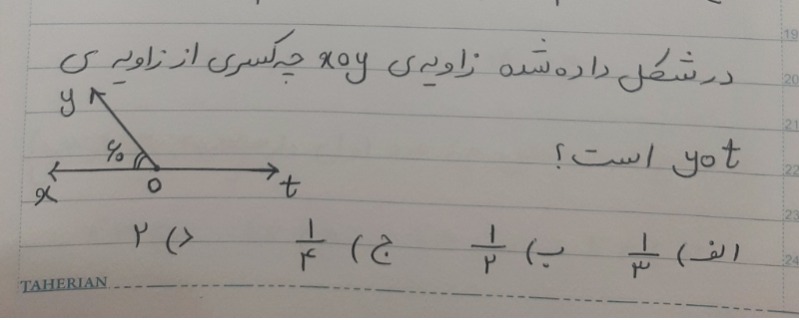 در شکل داده شده زاویه‌ی xoy چه کسری از زاویه‌ی
yot است؟
y
۶۰
x
o
t
الف) ۱/۳ ب) ۱/۲ ج) ۱/۴ د) ۲
TAHERIAN
19
20
21
22
23
24